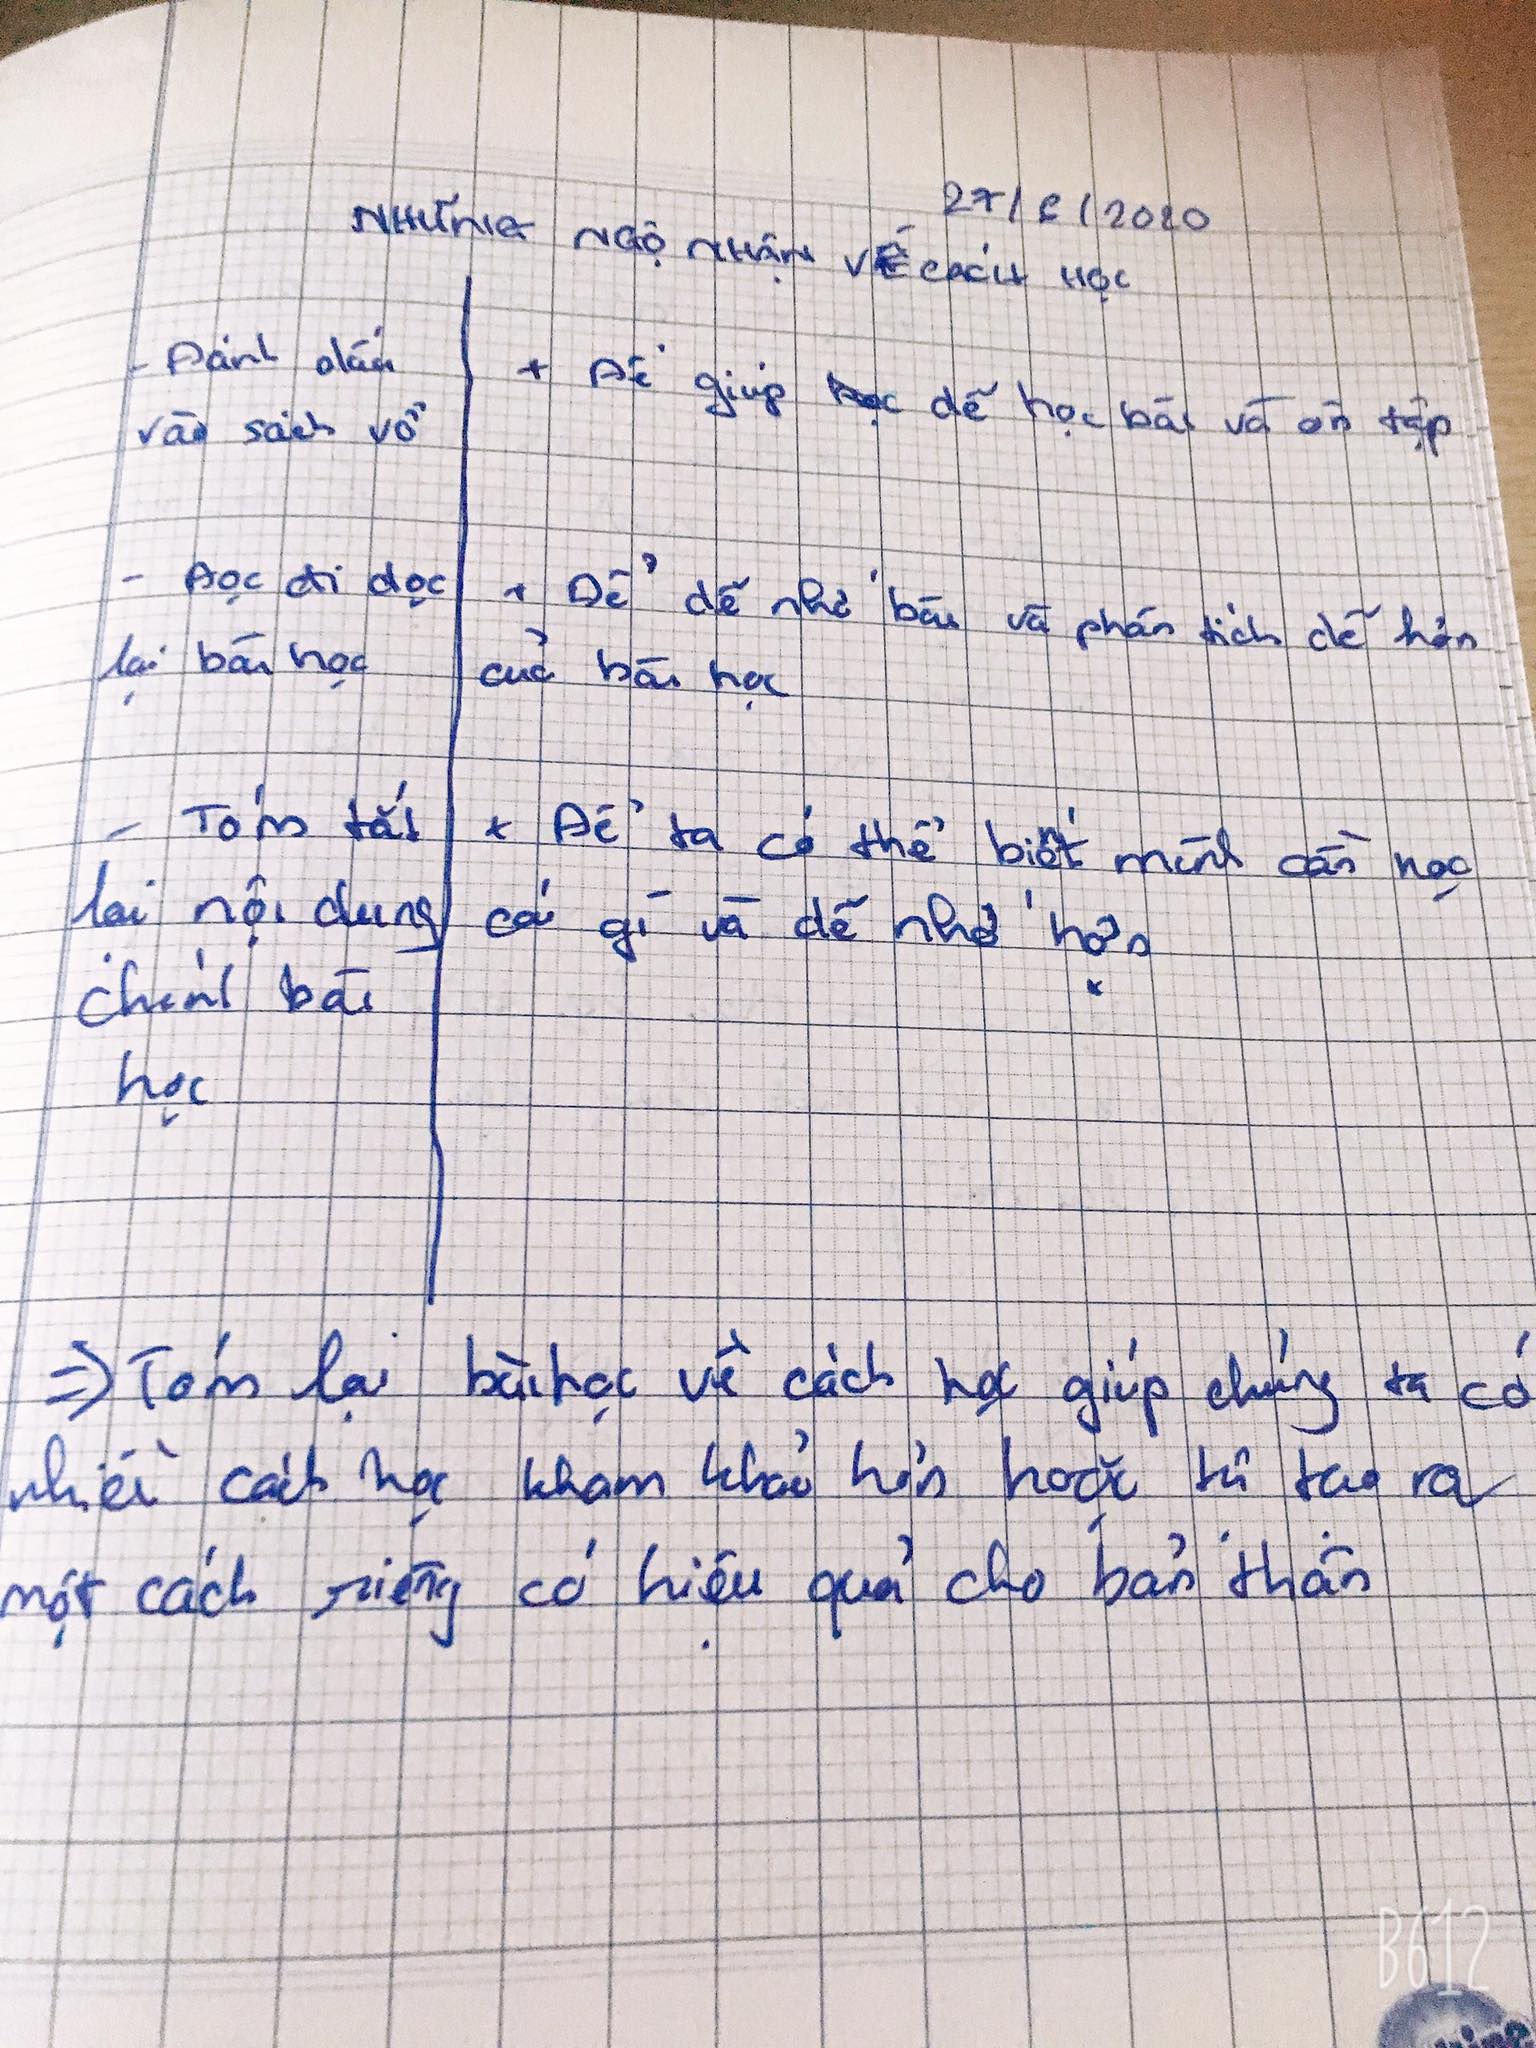 27/6/2020
NHỮNG NGỘ NHẬN VỀ CÁCH HỌC
- Đánh dấu
vào sách vở
+ Để giúp dễ học bài và ôn tập
- Đọc đi đọc
lại bài học
+ Để dễ nhớ bài và phân tích dễ hơn
của bài học
- Tóm tắt
lại nội dung
chính bài
học
+ Để ta có thể biết mình cần học
cái gì và dễ nhớ hơn
=> Tóm lại bài học về cách học giúp chúng ta có
nhiều cách học kham khảo hơn hoặc tự tạo ra
một cách riêng có hiệu quả cho bản thân
B612